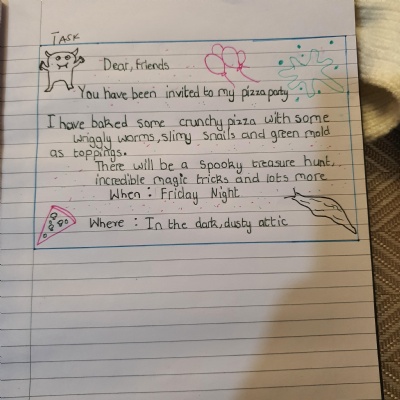 TASK
Dear, friends
You have been invited to my pizza party
I have baked some crunchy pizza with some
wriggly worms, slimy snails and green mold
as toppings.
There will be a spooky treasure hunt,
incredible magic tricks and lots more
When : Friday Night
Where : In the dark, dusty attic